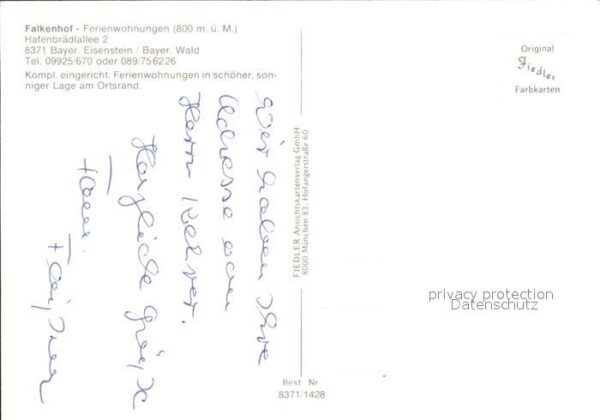 Falkenhof - Ferienwohnungen (800 m. ü. M.)
Hafenbrädlallee 2
8371 Bayer. Eisenstein / Bayer. Wald
Tel. 09925/670 oder 089/756226
Kompl. eingericht. Ferienwohnungen in schöner, son-
niger Lage am Ortsrand.
Wir haben Ihre
Adresse von
Herrn
Herzliche Grüße
FIEDLER Ansichtskartenverlag GmbH
8000 München 83, Hofangerstraße 60
Original
Fiedler
Farbkarten
privacy protection
Datenschutz
Best. Nr.
8371/1428